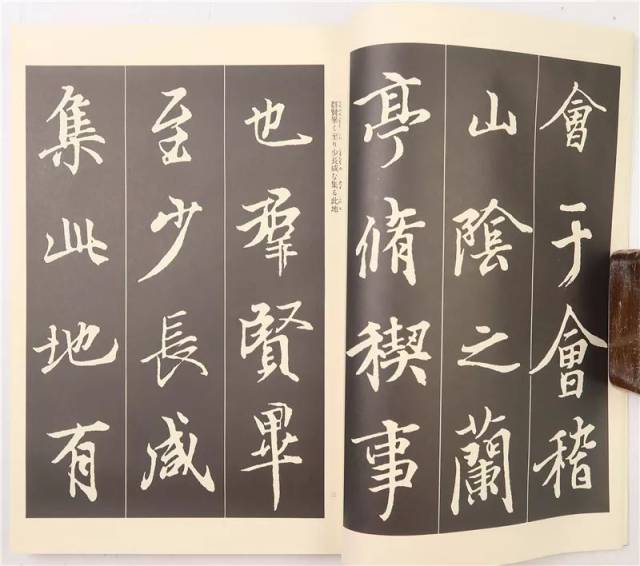 會于會稽
山陰之蘭
亭脩稧事
群賢畢く至り少長咸な集る此地
也羣賢畢
至少長咸
集此地有